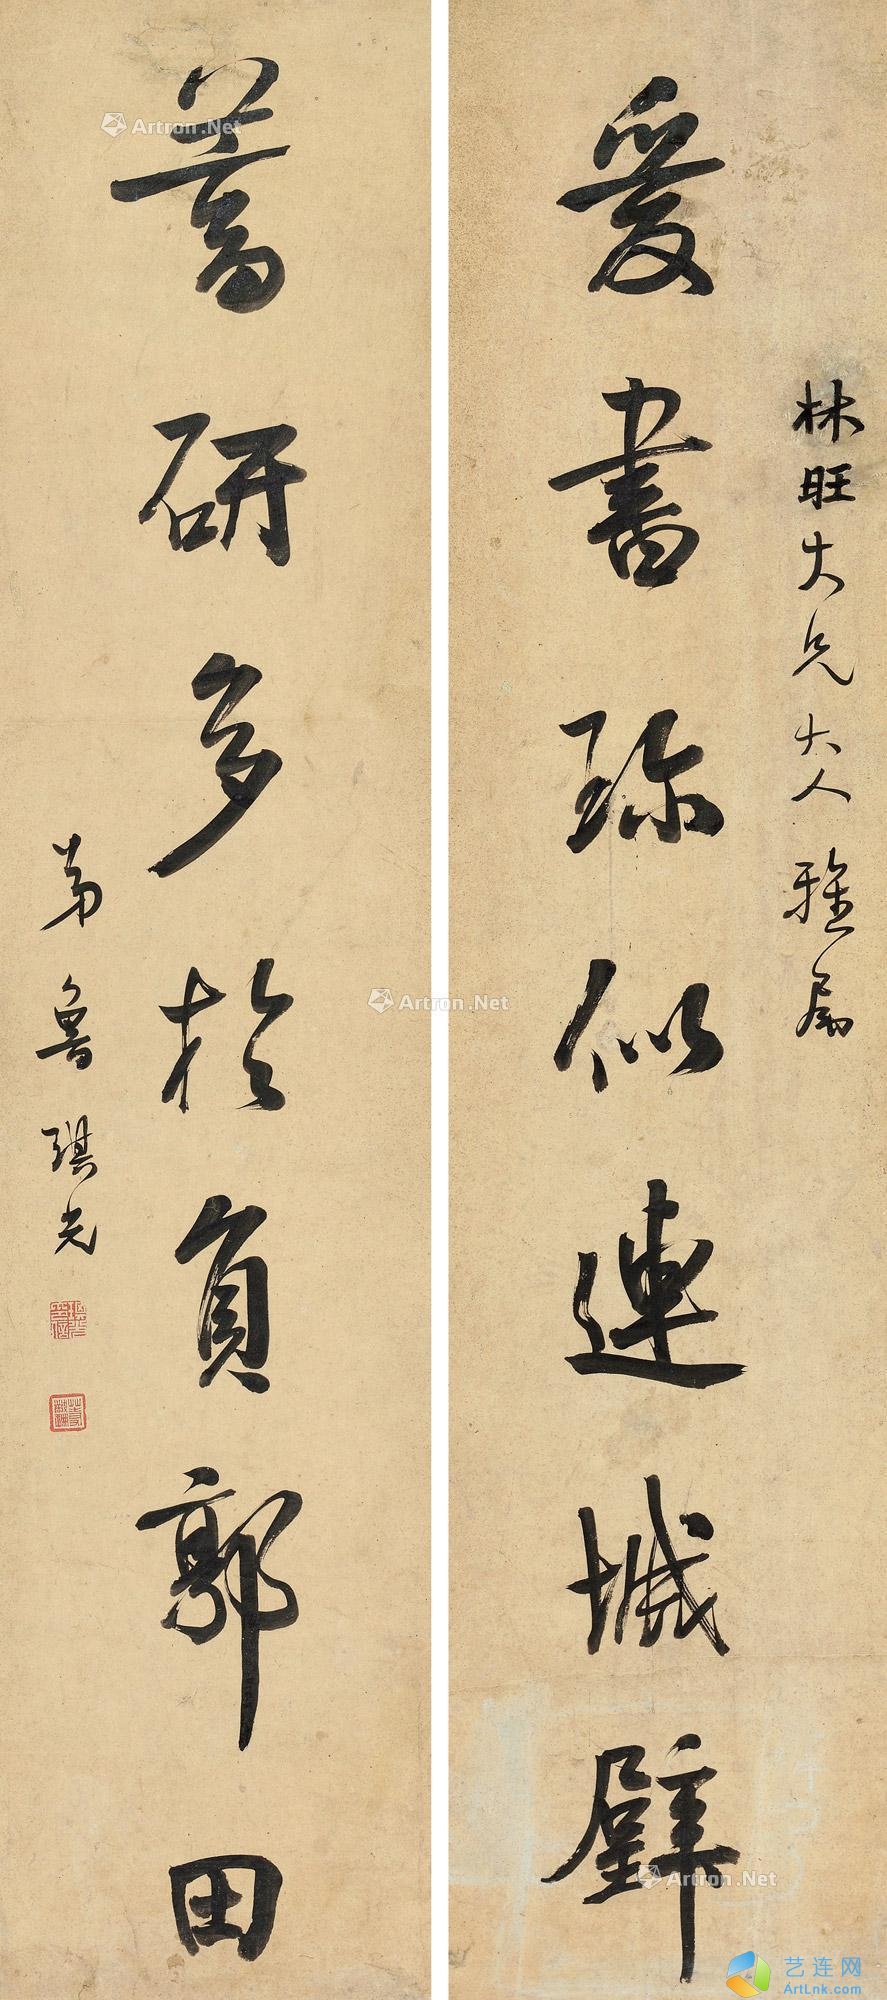 林旺大兄大人雅屬
爰書珎似連城璧
蓄研多於負郭田
弟魯琪光
Artron.Net
Artron.Net
Artron.Net
艺连网
ArtLink.com